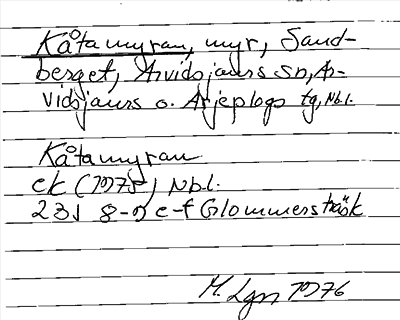 Kåtamyran, myr, Sand-
berget, Arvidsjaurs sn, Ar-
vidsjaurs o. Arjeplogs tg, Nbl.
Kåtamyran
ek (1975) Nbl.
23J 8-9 e-f Glommersträsk
M. Lgn 1976